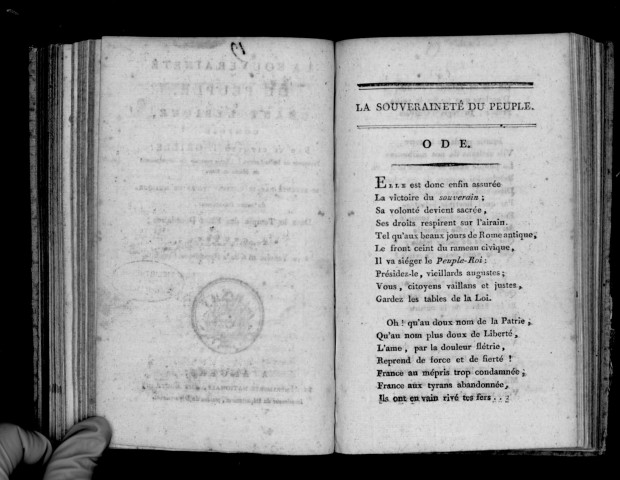 19
LA SOUVERAINETÉ DU PEUPLE.
ODE.
ELLE est donc enfin assurée
La victoire du souverain ;
Sa volonté devient sacrée,
Ses droits respirent sur l'airain.
Tel qu'aux beaux jours de Rome antique,
Le front ceint du rameau civique,
Il va siéger le Peuple-Roi :
Présidez-le, vieillards augustes ;
Vous, citoyens vaillans et justes,
Gardez les tables de la Loi.
Oh ! qu'au doux nom de la Patrie,
Qu'au nom plus doux de Liberté,
L'ame, par la douleur flétrie,
Reprend de force et de fierté !
France au mépris trop condamnée,
France aux tyrans abandonnée,
Ils ont en vain rivé tes fers . . :